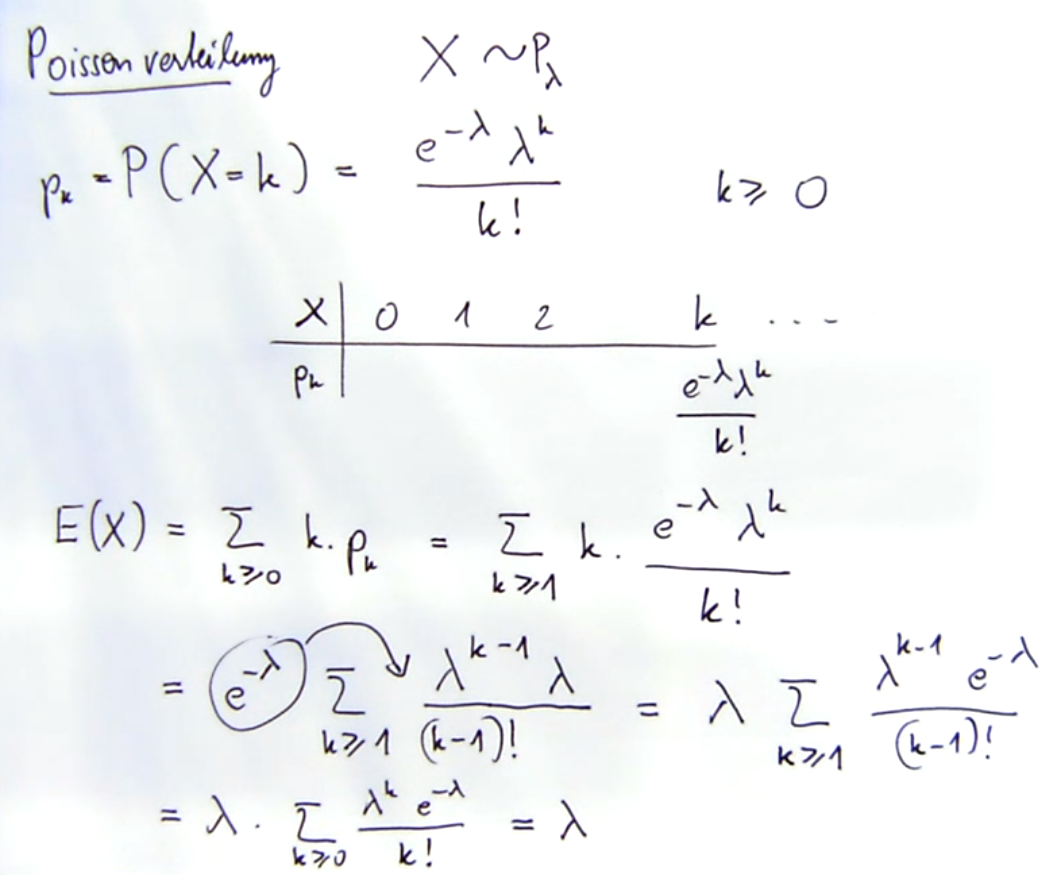 Poissonverteilung X ~ P_λ
p_k = P(X=k) = \frac{e^{-λ} λ^k}{k!} k ≥ 0
X | 0 1 2 k ...
p_k | \frac{e^{-λ} λ^k}{k!}
E(X) = \sum_{k≥0} k · p_k = \sum_{k≥1} k · \frac{e^{-λ} λ^k}{k!}
= e^{-λ} \sum_{k≥1} \frac{λ^{k-1} λ}{(k-1)!} = λ \sum_{k≥1} \frac{λ^{k-1} e^{-λ}}{(k-1)!}
= λ · \sum_{k≥0} \frac{λ^k e^{-λ}}{k!} = λ